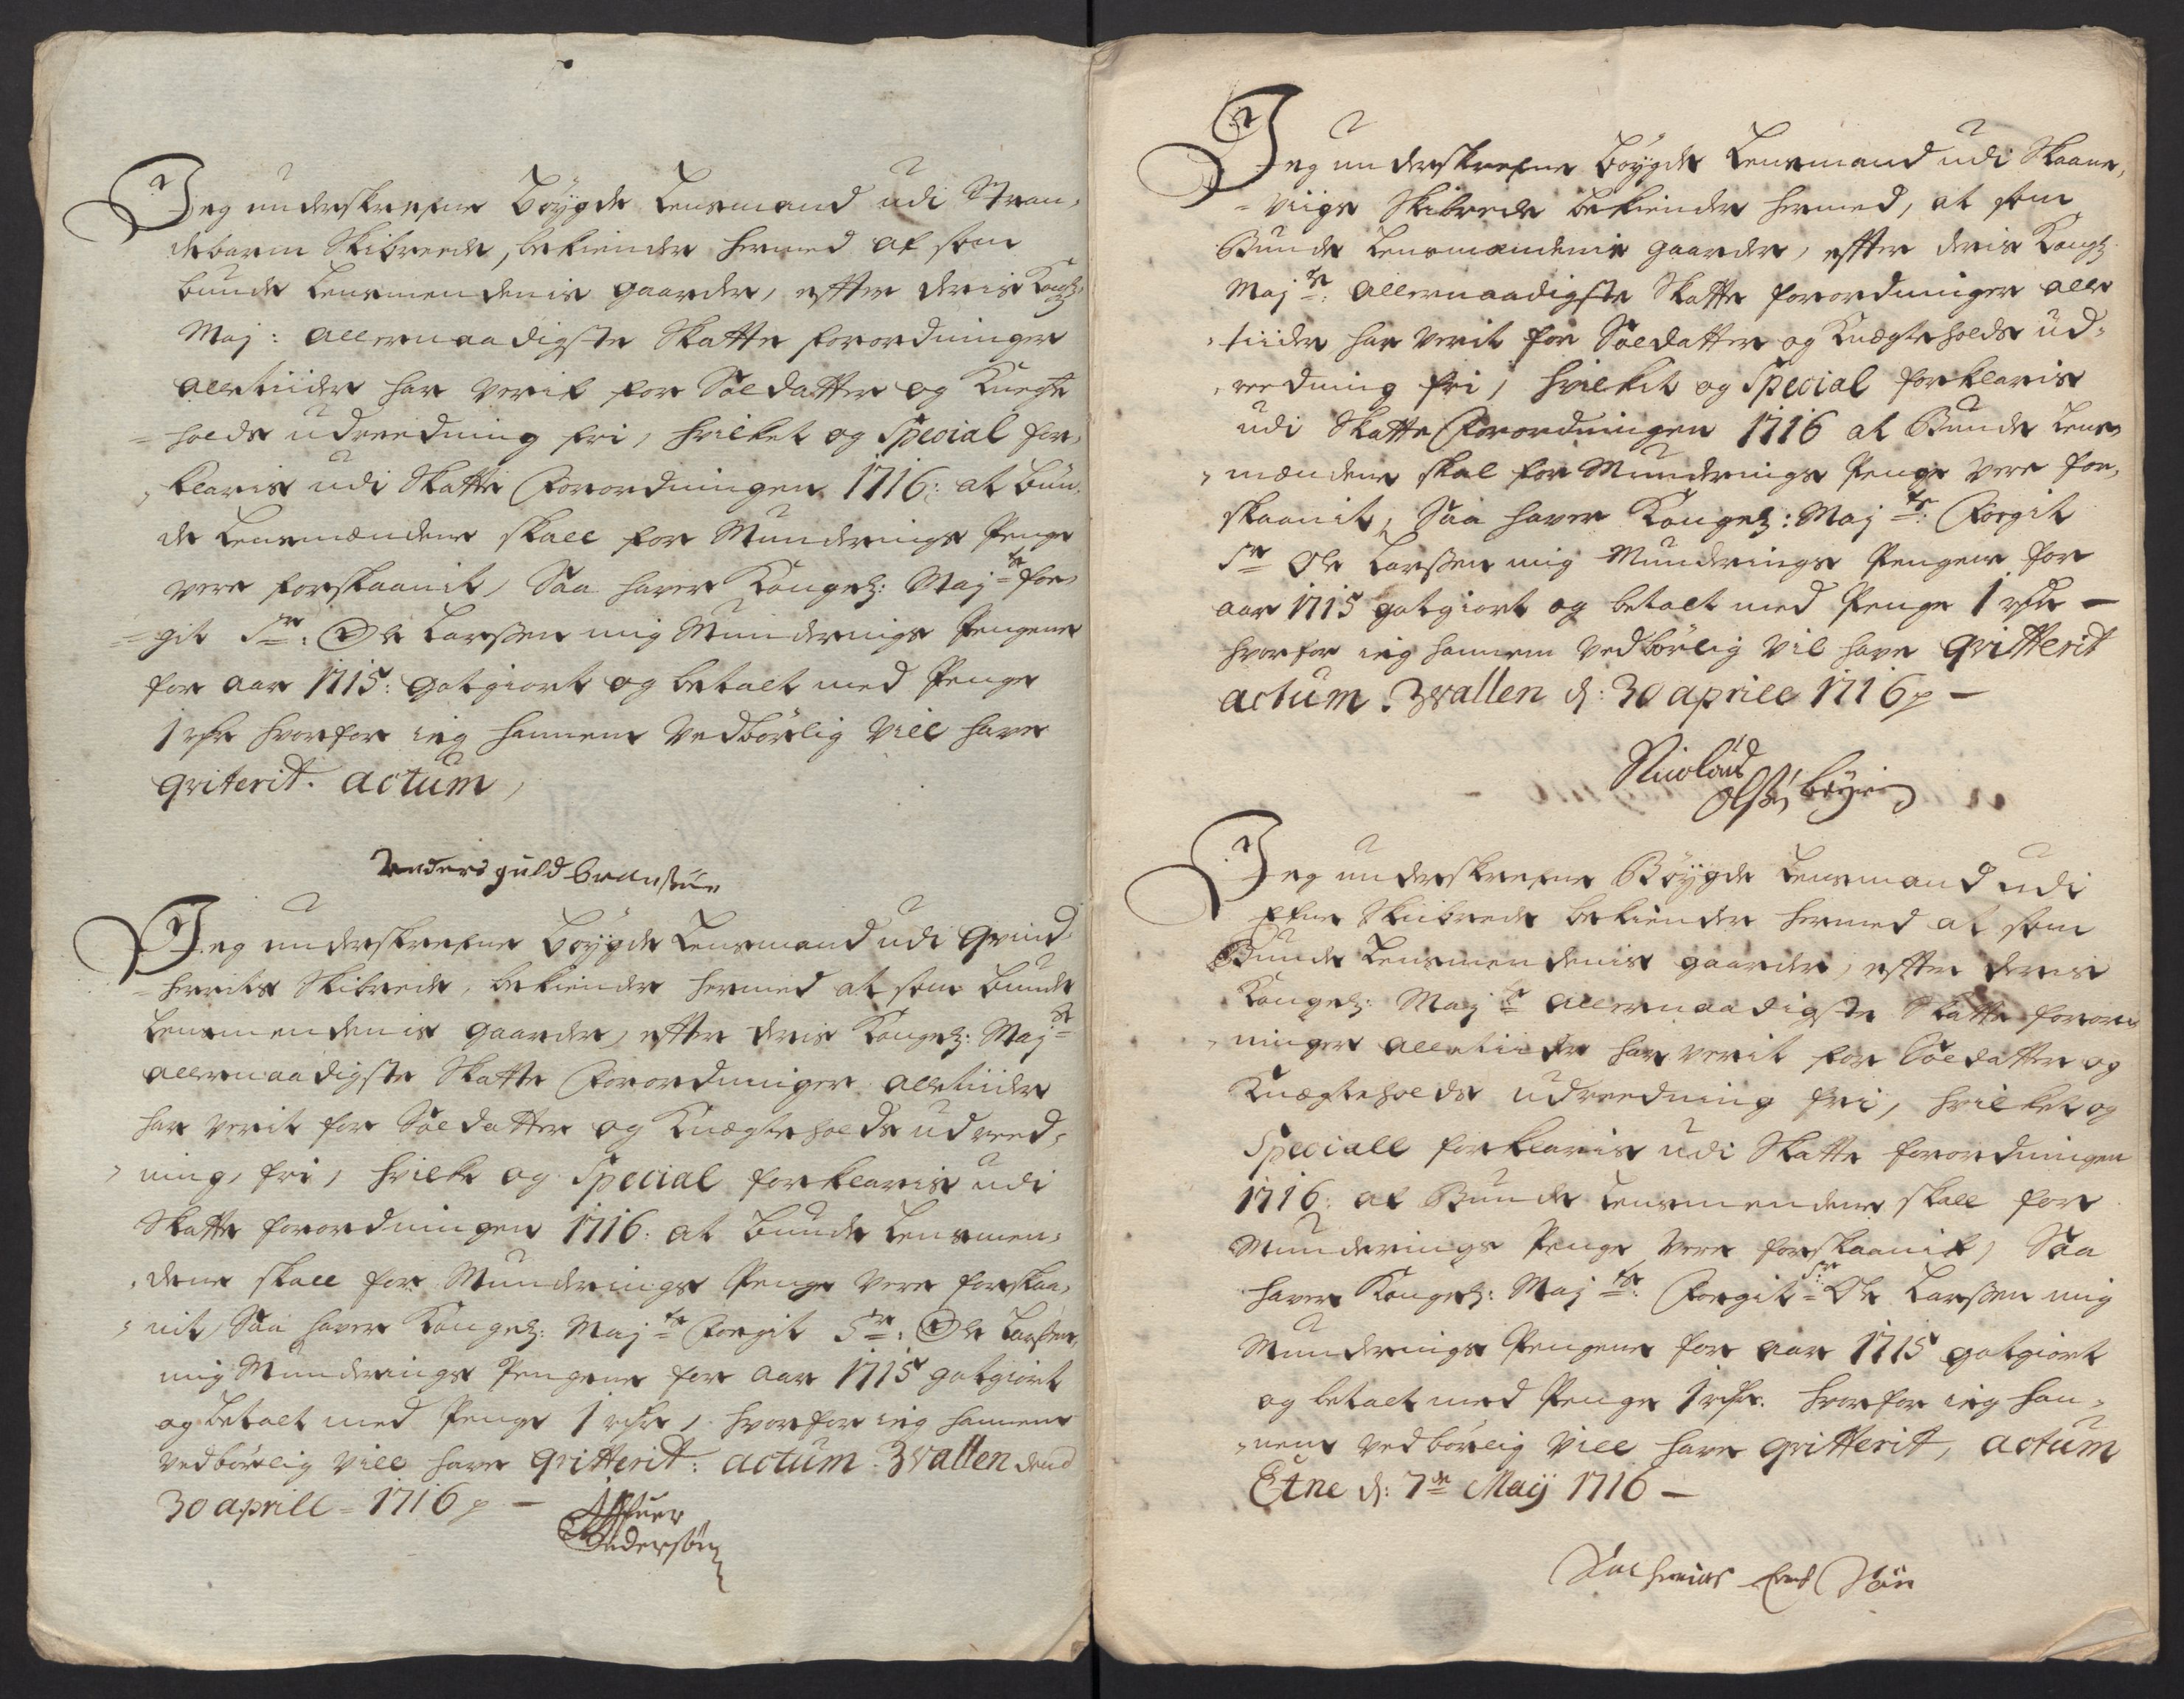 Jeg underskrefne Böygde Lensmand udi Stran,
debarm Skibreede, bekiender hermed at som
bunde Lensmendenis gaarder, effter deris Kongl:
Maj: allernaadigste Skatte forordninger
alletiider har verit for Soldatter og Knegte
=holds udreedning fri, hvilket og Special for,
,klaris udi Skatte Forordningen 1716: at bun,
de Lensmændene skall for Munderings Penge
vere forskaanit, Saa haver Kongel: Maj:te fo,
=git Sr: Ole Larssen mig Munderings Pengene
for aar 1715: gotgiort og betalt med Penge
1 rdr hvorfor ieg hannem vedbörlig vill have
qviterit. actum,
Anders guldbransøn
Jeg underskrefne Böygde Lensmand udi Qvind,
=herrits Skibrede, bekiender hermed at som bunde
Lensmendenis gaarder, effter deris Kongel: Maj:te
allernaadigste Skatte Forordninger alletiider
har verit for Soldatter og Knægteholds udreed,
,ning, fri, hvilke og Special forklaris udi
Skatte forordningen 1716: at bunde Lensmen,
,dene skall for Munderings Penge vere forskaa,
,nit, Saa haver Kongel: Maj:te Foegit Sr: Ole Larssen,
mig Munderings Pengene for aar 1715 gotgiort
og betalt med Penge 1 rdr, hvorfor ieg hannem
vedbörlig vill haver qvitterit: actum Zvallen dend
30 aprill = 1716 p —
Andersøn
Jeg underskrefne Böygde Lensmand udi Skaane,
=viigs Skibrede bekiender hermed, at som
Bunde Lensmændenis gaarder, effter deris Kongl:
Maj:te: allernaadigste Skatte forordninger alle
,tiider har verit for Soldatter og Knægteholds ud=
,reedning fri, hvilkit og Special forklaris
udi Skatte Forordningen 1716 at Bunde Lens
,mændene skal for Munderings Penge vere for,
skaanit, Saa haver Kongel: Maj:te: Foegit
Sr Ole Larssen mig Munderings Pengene for
aar 1715 gotgiort og betalt med Penge 1 rdr —
hvorfor ieg hannem vedbörlig vil have qvitterit
actum Zvallen d: 30 aprill 1716 p —
Nicolaus
Olss: böyni
Jeg underskrefne Böygde Lensmand udi
Etne Skibrede bekiender hermed at som
Bunde Lensmendenis gaarder, effter deris
Kongel: Maj:te allernaadigste Skatte foror
,ninger alletiider har verit for Soldatter og
Knægteholds udreedning fri, hvilket og
Speciall forklaris udi Skatte forordningen
1716: at Bunde Lensmendene skall for
Munderings Penge vere forskaanit, Saa
haver Kongel: Maj:te: Foegit Sr: Ole Larssen mig
Munderings Pengene for aar 1715 gotgiort
og betalt med Penge 1 rdr. hvorfor ieg han,
,nem vedbörlig vill have qvitterit, actum
Etne d: 7de Maÿ 1716 —